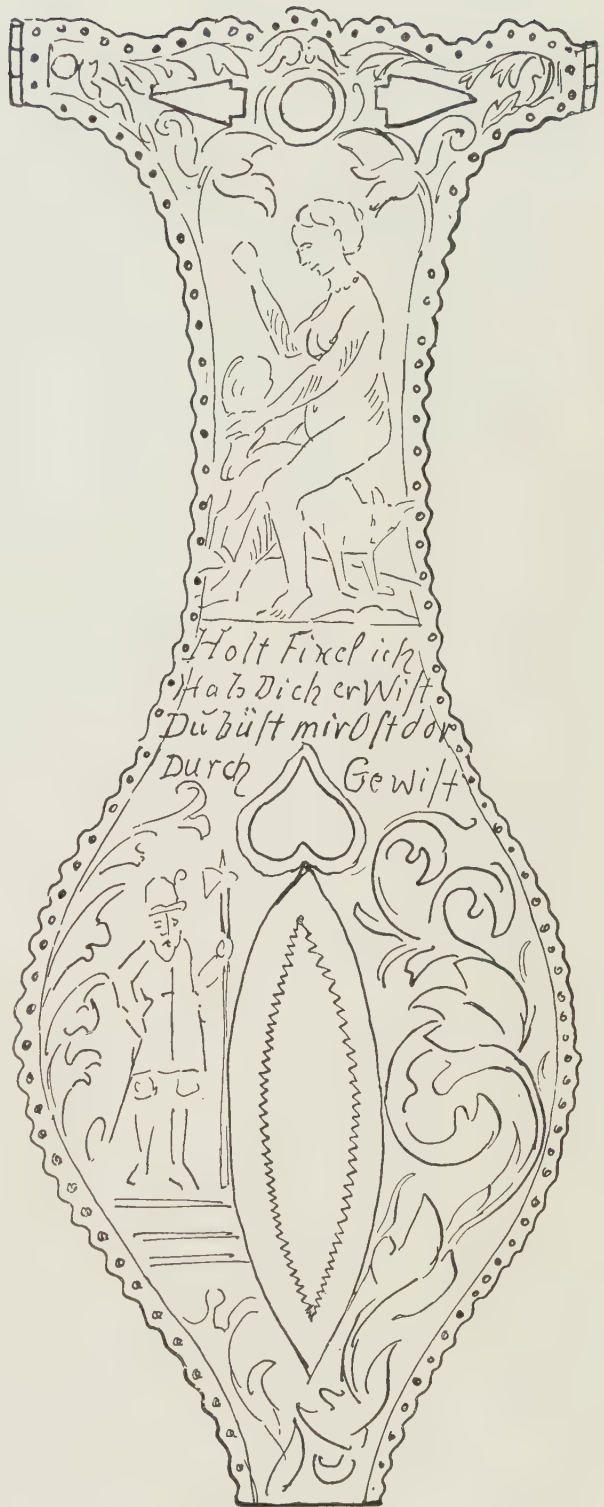 Holt Fixel ich
Hab Dich erWist
Dŭ büst mir Oft dor
Durch Gewist